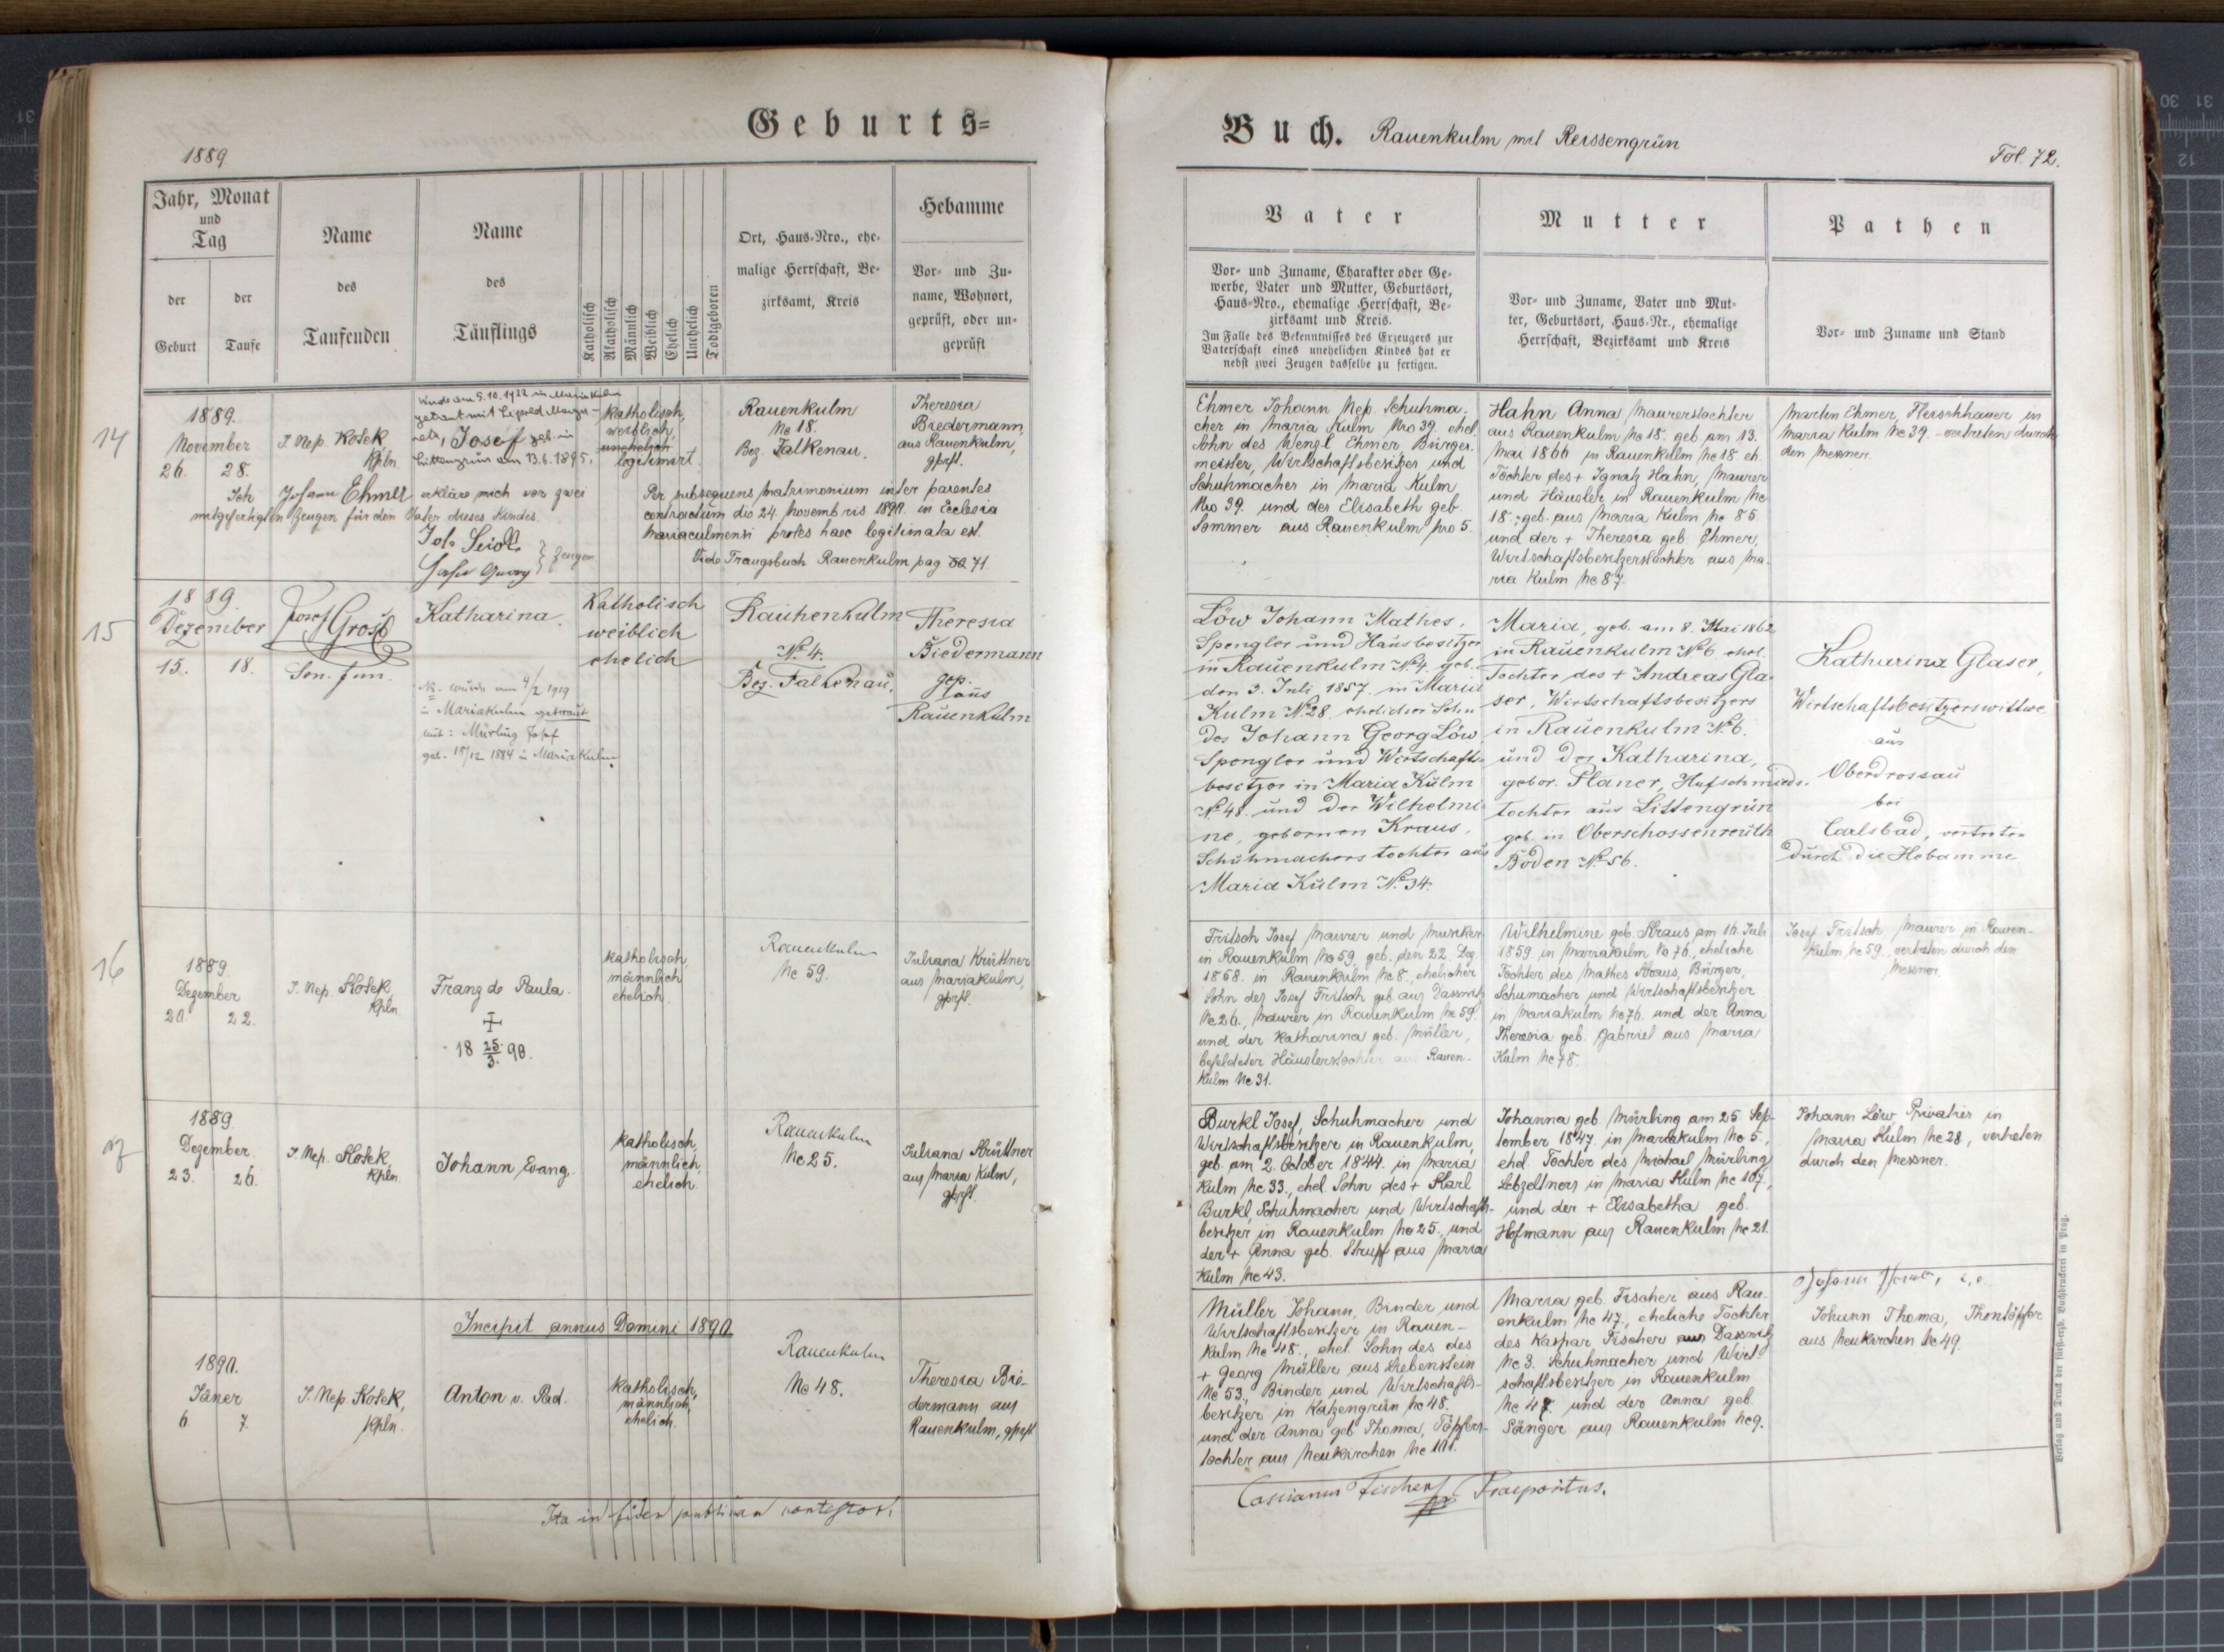 Geburts=
1889
Jahr, Monat
und
Tag
der
Geburt
der
Taufe
Name
des
Taufenden
Name
des
Täuflings
Katholisch
Akatholisch
Männlich
Weiblich
Ehelich
Unehelich
Todtgeboren
Ort, Haus-Nro., ehe-
malige Herrschaft, Be-
zirksamt, Kreis
Hebamme
Vor- und Zu-
name, Wohnort,
geprüft, oder un-
geprüft
14
1889.
November
26. 28.
J. Nep. Kosek
Kpln.
Wurde am 5.10.1922 in Maria Kulm
getraut mit Leopold
Josef geb. in
Littengrün am 13.6.1895.
katholisch,
weiblich,
unehelich
legitimirt.
Rauenkulm
No 18.
Bez. Falkenau.
Theresia
Biedermann,
aus Rauenkulm,
gprft.
Ich Johann Ehmer erkläre mich vor zwei
mitgefertigten Zeugen für den Vater dieses Kindes.
Zeugen
Per subsequens matrimonium inter parentes
contractum die 24. Novembris 1890. in Ecclesia
Mariaculmensi proles haec legitimata est.
Vide Trauungsbuch Rauenkulm pag 71.
15
1889.
Dezember
15. 18.
Josef Grosß
Katharina.
NB. wurde am 4/2 1919
in Mariakulm getraut
mit: Mürling Josef
geb. 18/12 1884 in Mariakulm.
Katholisch
weiblich
ehelich
Rauhenkulm
No. 4.
Bez. Falkenau.
Theresia
Biedermann
gep.
aus
Rauenkulm
16
1889.
Dezember
20. 22.
J. Nep. Kosek,
Kpln.
Franz de Paula.
18 25./3. 90.
katholisch,
männlich
ehelich.
Rauenkulm
No 59.
Juliana Krüttner
aus Mariakulm,
gprft.
17
1889.
Dezember.
23. 26.
J. Nep. Kosek,
Kpln.
Johann Evang.
katholisch,
männlich,
ehelich.
Rauenkulm
No 25.
Juliana Krüttner
aus Maria Kulm,
gprft.
Incipit annus Domini 1890.
1890.
Jäner
6 7.
J. Nep. Kosek,
Kpln.
Anton v. Pad.
katholisch,
männlich,
ehelich.
Rauenkulm
No 48.
Theresia Bie-
dermann aus
Rauenkulm, gprft
Ita in fidem publicam contestor!
Buch. Rauenkulm mit Reissengrün
Fol. 72.
Vater
Vor- und Zuname, Charakter oder Ge-
werbe, Vater und Mutter, Geburtsort,
Haus-Nro., ehemalige Herrschaft, Be-
zirksamt und Kreis.
Im Falle des Bekenntnisses des Erzeugers zur
Vaterschaft eines unehelichen Kindes hat er
nebst zwei Zeugen dasselbe zu fertigen.
Mutter
Vor- und Zuname, Vater und Mut-
ter, Geburtsort, Haus-Nr., ehemalige
Herrschaft, Bezirksamt und Kreis
Pathen
Vor- und Zuname und Stand
Ehmer Johann Nep. Schuhma-
cher in Maria Kulm Nro 39. ehel.
Sohn des Wenzl Ehmer, Bürger-
meister, Wirtschaftsbesitzer und
Schuhmacher in Maria Kulm
Nro 39. und der Elisabeth geb
Sommer aus Rauenkulm Nro 5.
Hahn Anna Maurerstochter
aus Rauenkulm No 18. geb am 13.
Mai 1866 in Rauenkulm No 18 eh.
Tochter des + Ignatz Hahn, Maurer
und Häusler in Rauenkulm No
18., geb. aus Maria Kulm No 85
und der + Theresia geb. Ehmer,
Wirtschaftsbesitzerstochter aus Ma-
ria Kulm No 87.
Martin Ehmer, Fleischhauer in
Maria Kulm No 39. - vertreten durch
den Messner.
Löw Johann Mathes,
Spengler und Hausbesitzer
in Rauenkulm No. 4. geb.
den 3. Juli 1857. in Maria
Kulm No. 28. ehelicher Sohn
des Johann Georg Löw
Spengler und Wirtschafts-
besitzer in Maria Kulm
No. 48. und der Wilhelmi-
ne, gebornen Kraus,
Schuhmachers tochter aus
Maria Kulm No. 34.
Maria, geb. am 8. Mai 1862
in Rauenkulm No. 6 ehel.
Tochter des + Andreas Gla-
ser, Wirtschaftsbesitzers
in Rauenkulm No. 6.
und der Katharina,
gebor. Planer, Hufschmieds-
tochter aus Littengrün
geb. in Oberschossenreuth
Boden No. 56.
Katharina Glaser,
Wirtschaftsbesitzerswittwe
aus
Oberdrossau
bei
Carlsbad, vertreten
durch die Hebamme
Fritsch Josef Maurer und Musiker
in Rauenkulm No 59, geb. den 22. Dez.
1858. in Rauenkulm No 8., ehelicher
Sohn des Josef Fritsch geb. aus Dassnitz
No 26., Maurer in Rauenkulm No 59.
und der Katharina geb. Müller,
befeldeter Häuslerstochter aus Rauen-
kulm No 31.
Wilhelmine geb. Kraus am 16. Juli
1859 in Mariakulm No 76, eheliche
Tochter des Mathes Kraus, Bürger,
Schumacher und Wirtschaftsbesitzer
in Mariakulm No 76. und der Anna
Theresia geb. Gabriel aus Maria
Kulm No 78.
Josef Fritsch Maurer in Rauen-
kulm No 59. vertreten durch den
Messner.
Burkl Josef, Schuhmacher und
Wirtschaftsbesitzer in Rauenkulm,
geb. am 2. October 1844. in Maria
Kulm No 33., ehel. Sohn des + Karl
Burkl, Schuhmacher und Wirtschafts-
besitzer in Rauenkulm No 25., und
der + Anna geb. Strupf aus Maria
Kulm No 43.
Johanna geb. Mürling am 25 Sep-
tember 1847 in Mariakulm No 5.,
ehel. Tochter des Michael Mürling
Lebzeltners in Maria Kulm No 107.,
und der + Elisabetha geb.
Hofmann aus Rauenkulm No 21.
Johann Löw Privatier in
Maria Kulm No 28, vertreten
durch den Messner.
Müller Johann, Binder und
Wirtschaftsbesitzer in Rauen-
kulm No 48., ehel. Sohn des des
+ Georg Müller aus Liebenstein
No 53., Binder und Wirtschafts-
besitzer in Katzengrün No 48.
und der Anna geb Thoma, Töpfers-
tochter aus Neukirchen No 101.
Maria geb. Fischer aus Rau-
enkulm No 47., eheliche Tochter
des Kaspar Fischer aus Dassnitz
No 3. Schuhmacher und Wirt-
schaftsbesitzer in Rauenkulm
No 47. und der Anna geb.
Sänger aus Rauenkulm No 9.
Johann Thoma,
Johann Thoma, Thontöpfer
aus Neukirchen No 49.
Cassianus Fischer Praepositus.
Verlag und Druck der fürst-erzb. Buchdruckerei in Prag.